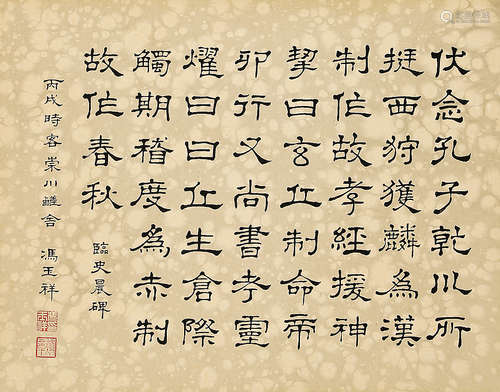 伏念孔子乾川所
挺西狩獲麟為漢
制作故孝經援神
挈曰玄丘制命帝
卯行又尚書考靈
燿曰曰丘生倉際
觸期稽度為赤制
故作春秋
臨史晨碑
丙戌時客崇川舍 馮玉祥